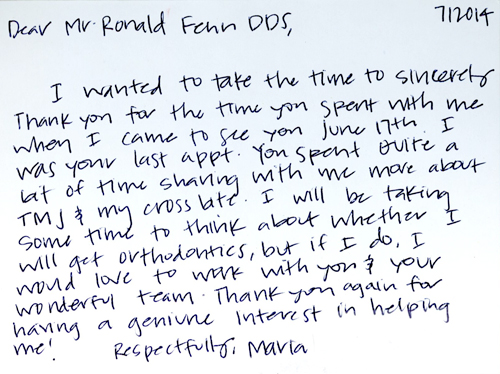 7/2014
Dear Mr. Ronald Fehn DDS,
I wanted to take the time to sincerely
Thank you for the time you spent with me
when I came to see you June 17th. I
was your last appt. You spent quite a
bit of time sharing with me more about
TMJ & my cross bite. I will be taking
some time to think about whether I
will get orthodontics, but if I do, I
would love to work with you & your
wonderful team. Thank you again for
having a geniune interest in helping
me! Respectfully, Maria